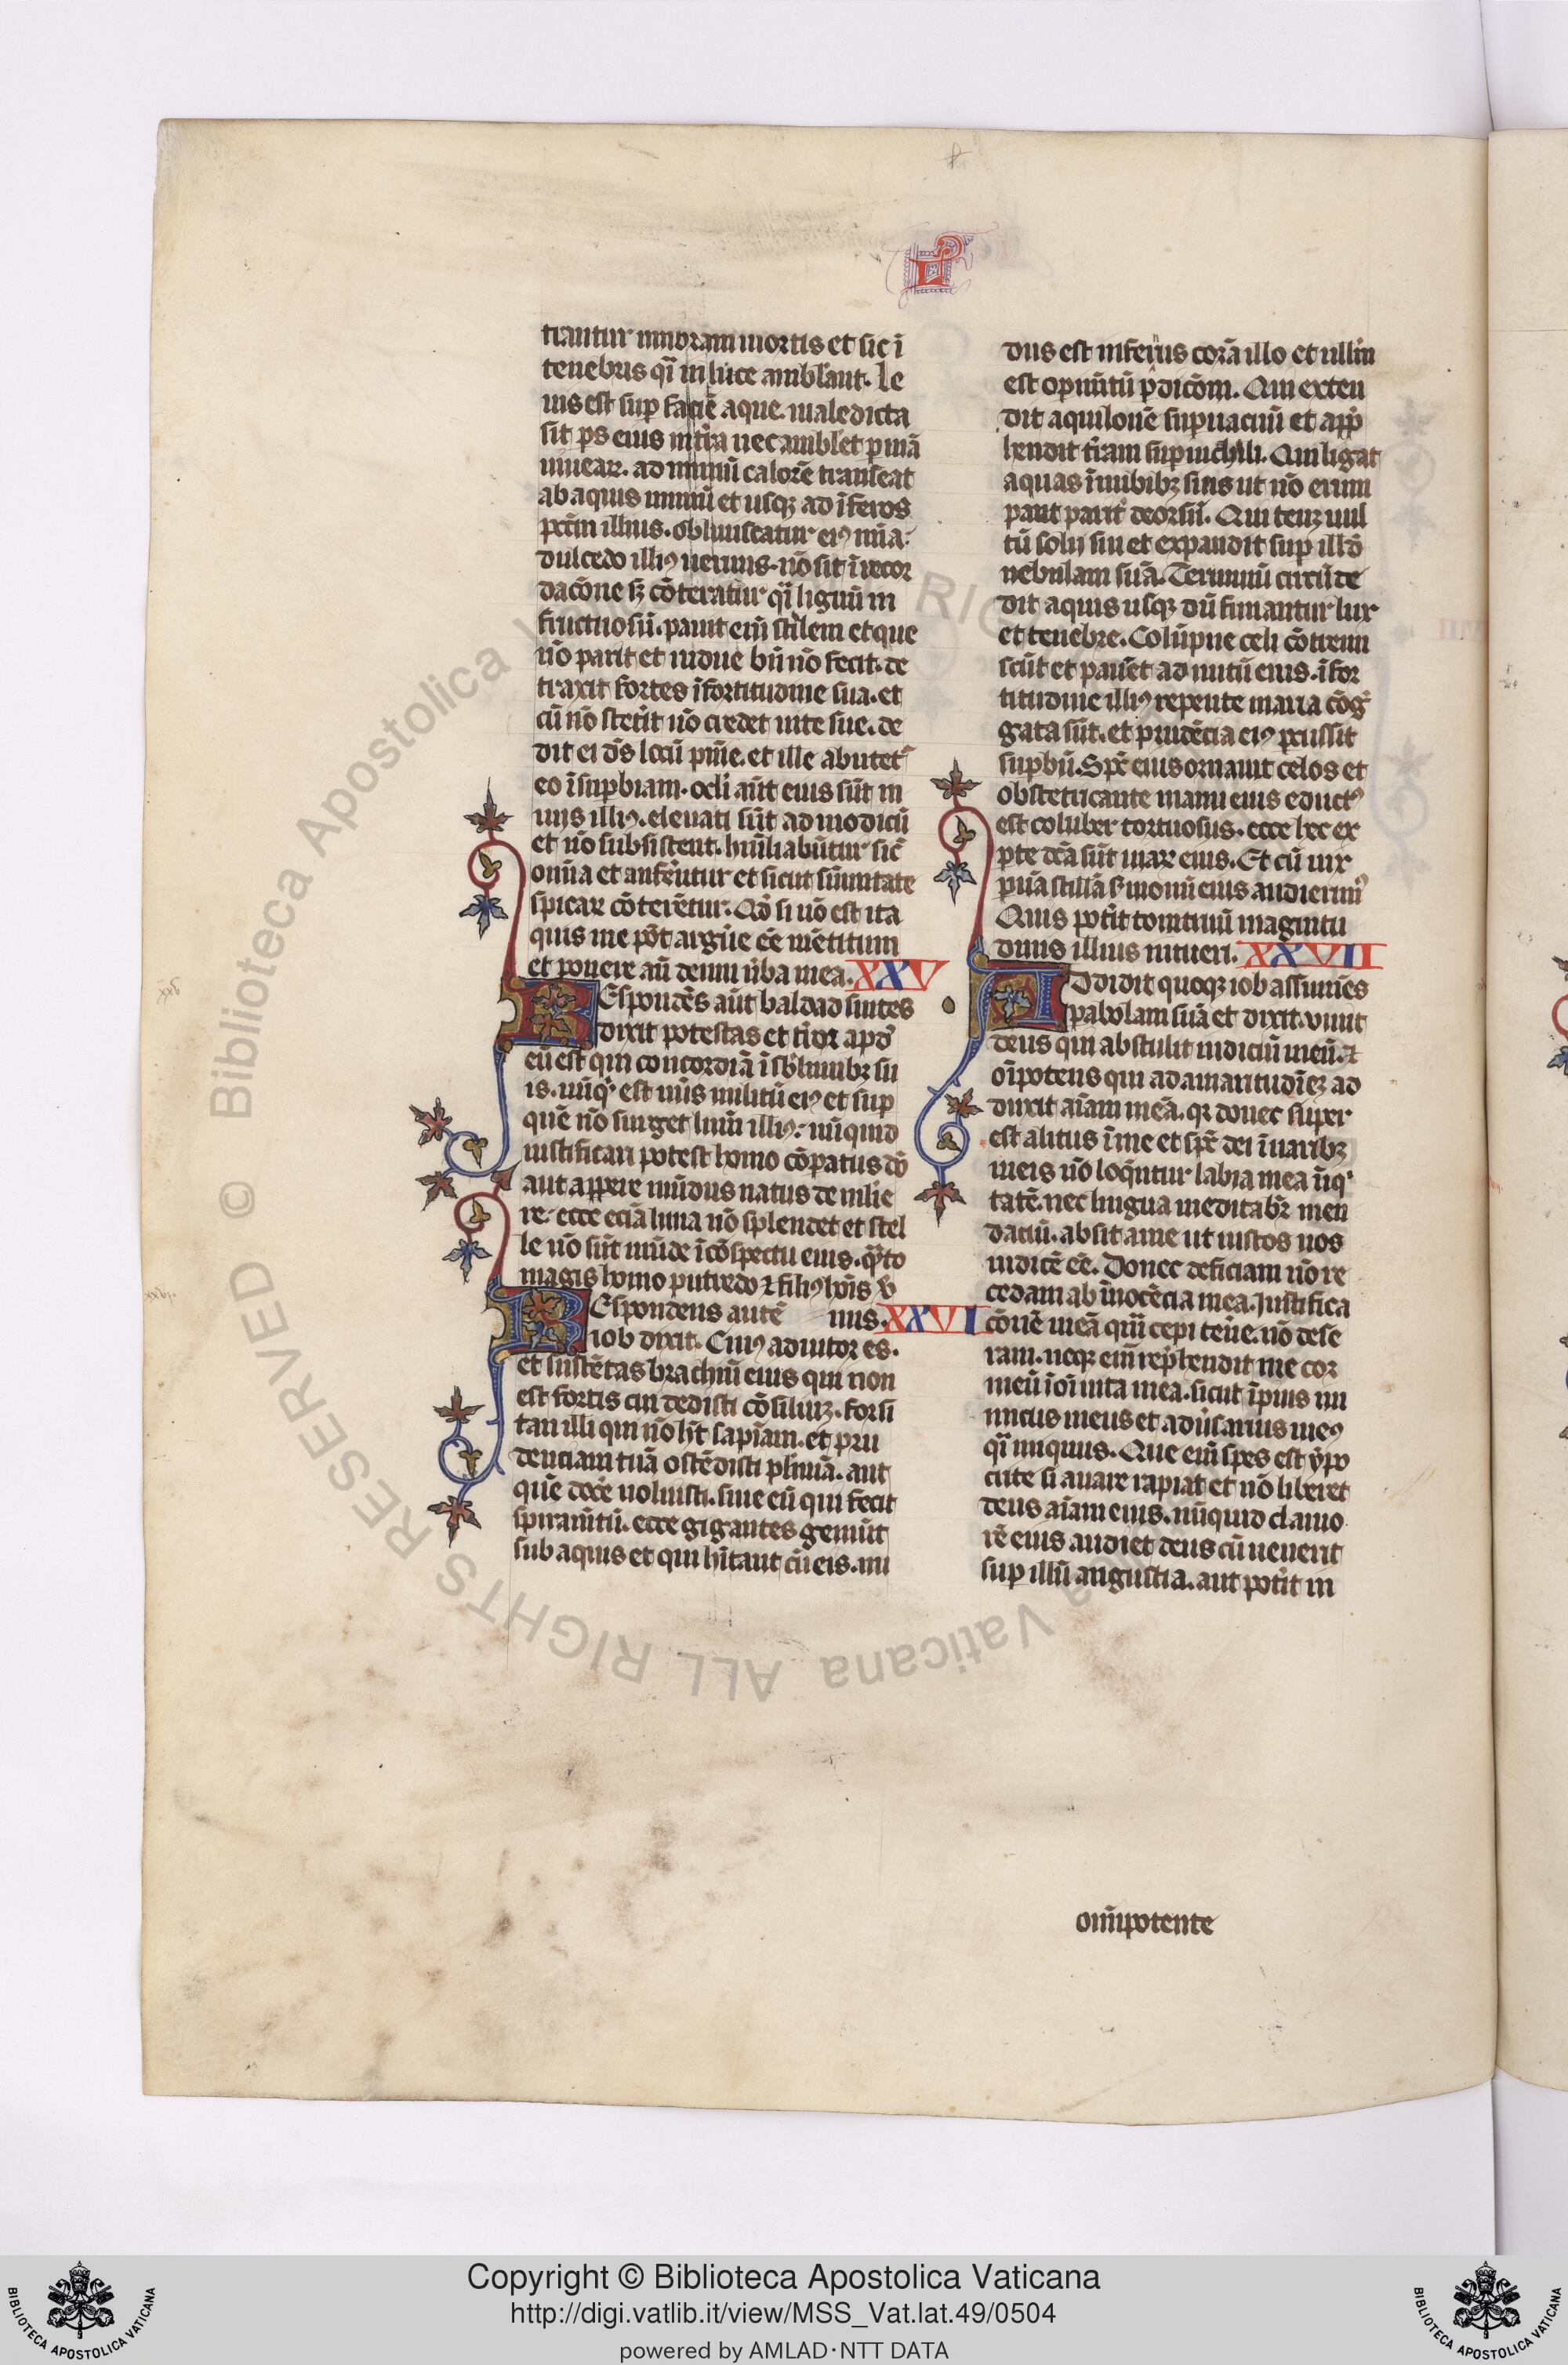 trantur umbram mortis et sic ī
tenebris qͥ in luce ambĺant. Le
uis est sup̱ faciē aque. maledicta
sit ꝑs eius in t̄ra nec ambĺet ꝑ uiā
uinear. ad nimiū calorē transeat
ab aquis niuiū et usqꝫ ad īferos
pctm̄ illius. obliuiscatur eiꝰ mīa.
dulcedo illiꝰ uermis. nō sit ī recor
dacōne sꝫ cōteratur qͥ lignū in
fructuosū. pauit eni᷒ stĺem et que
nō parit et uidue bn̄ nō fecit. de
traxit fortes ī fortitudine sua. et
cū nō steterit nō credet uite sue. de
dit ei dꝰs locū pnīe. et ille abutetᷣ
eo ī suꝑbiam. ocĺi aūt eius sūt in
uiis illiꝰ. eleuati sūt ad modicū
et nō subsistent. humiliabūtur sic̄
omīa et auferūtur et sicut sūmitate
spicar cōterētur. Qđ si nō est ita
quis me pōt argūe eē mētitum
et ponere añ deum ūba mea. XXV
REspondēs aūt baldad suites
dixit potestas et tīor apđ
eū est qui concordiā ī sb́limibꝫ su
is. nūqͥ est nūs militū eiꝰ et sup̱
quē nō surget lum̄ illiꝰ. nūquid
iustificari potest homo cōparatus dō
aut apꝑere mūdus natus de mlie
re. ecce eciā luna nō splendet et stel
le nō sūt mūde ī cōspectu eius. qͣto
magis homo putredo ⁊ filiꝰ hoīs ū
REspondens autē mis. XXVI
iob dixit. Cuiꝰ adiutor es.
et sustētas brachiū eius qui non
est fortis cui dedisti cōsiliuꝫ. forsi
tan illi qui nō ht̄ sapīam. et pru
denciam tuā ostēdisti plīmā. aut
quē docē uoluisti. siue eū qui fecit
spiram̄tū. ecce gigantes gemūt
sub aquis et qui hītant cū eis. nu
dus est infernus corā illo et nullū
est opīm̄tū ꝑdicōni. Qui exten
dit aquilonē suꝑ uacuū et apꝑ
hendit t̄ram suꝑ nichili. Qui ligat
aquas ī nubibꝫ suis ut nō erum
pant parit̄ deorsū. Qui tenꝫ uul
tū solii sui et expandit sup̱ illđ
nebulam suā. Terminū circūde
dit aquis usqꝫ dū finiantur lux
et tenebre. Colūpne celi cōtremi
scūt et pauēt ad nutū eius. ī for
titudine illiꝰ repente maria cōgͤ
gata sūt. et prudēcia eiꝰ ꝑcussit
suꝑbū. Sp̄c eius ornauit celos et
obstetricante manu eius eductꝰ
est coluber tortuosus. ecce hec ex
ꝑte dc̄a sūt uiar eius. Et cū uix
ꝑuā stillā s̄monū eius audierimꝰ
Quis pot̄it tonitruū magnitu
dinis illius intueri. XXVII
ADdidit quoqꝫ iob assumēs
ꝑabolam suā et dixit. viuit
deus qui abstulit iudiciū meū. ⁊
oīpotens qui ad amaritudīeꝫ ad
duxit aīam meā. qr donec super
est alitus ī me et sp̄c dei ī naribꝫ
meis nō loqūtur labia mea īiqͥ
tatē. nec lingua meditabr̄ men
daciū. absit a me ut iustos uos
iudicē eē. Donec deficiam nō re
cedam ab īnocēcia mea. Justifica
cōnē meā quā cepi tenē. nō dese
ram. neqꝫ eni᷒ rep̄hendit me cor
meū ī oī uita mea. sicut īpius ini
micus meus et aduīsarius meꝰ
qͥ iniquus. Que eni᷒ spes est ẏpo
crite si auare rapiat et nō liberet
deus aīam eius. nūquid clamo
rē eius audiet deus cū uenerit
sup̱ illū angustia. aut pot̄it in
omīpotente
© Biblioteca Apostolica Vaticana ALL RIGHTS RESERVED
Copyright © Biblioteca Apostolica Vaticana
http://digi.vatlib.it/view/MSS_Vat.lat.49/0504
powered by AMLAD·NTT DATA
BIBLIOTECA APOSTOLICA VATICANA
BIBLIOTECA APOSTOLICA VATICANA